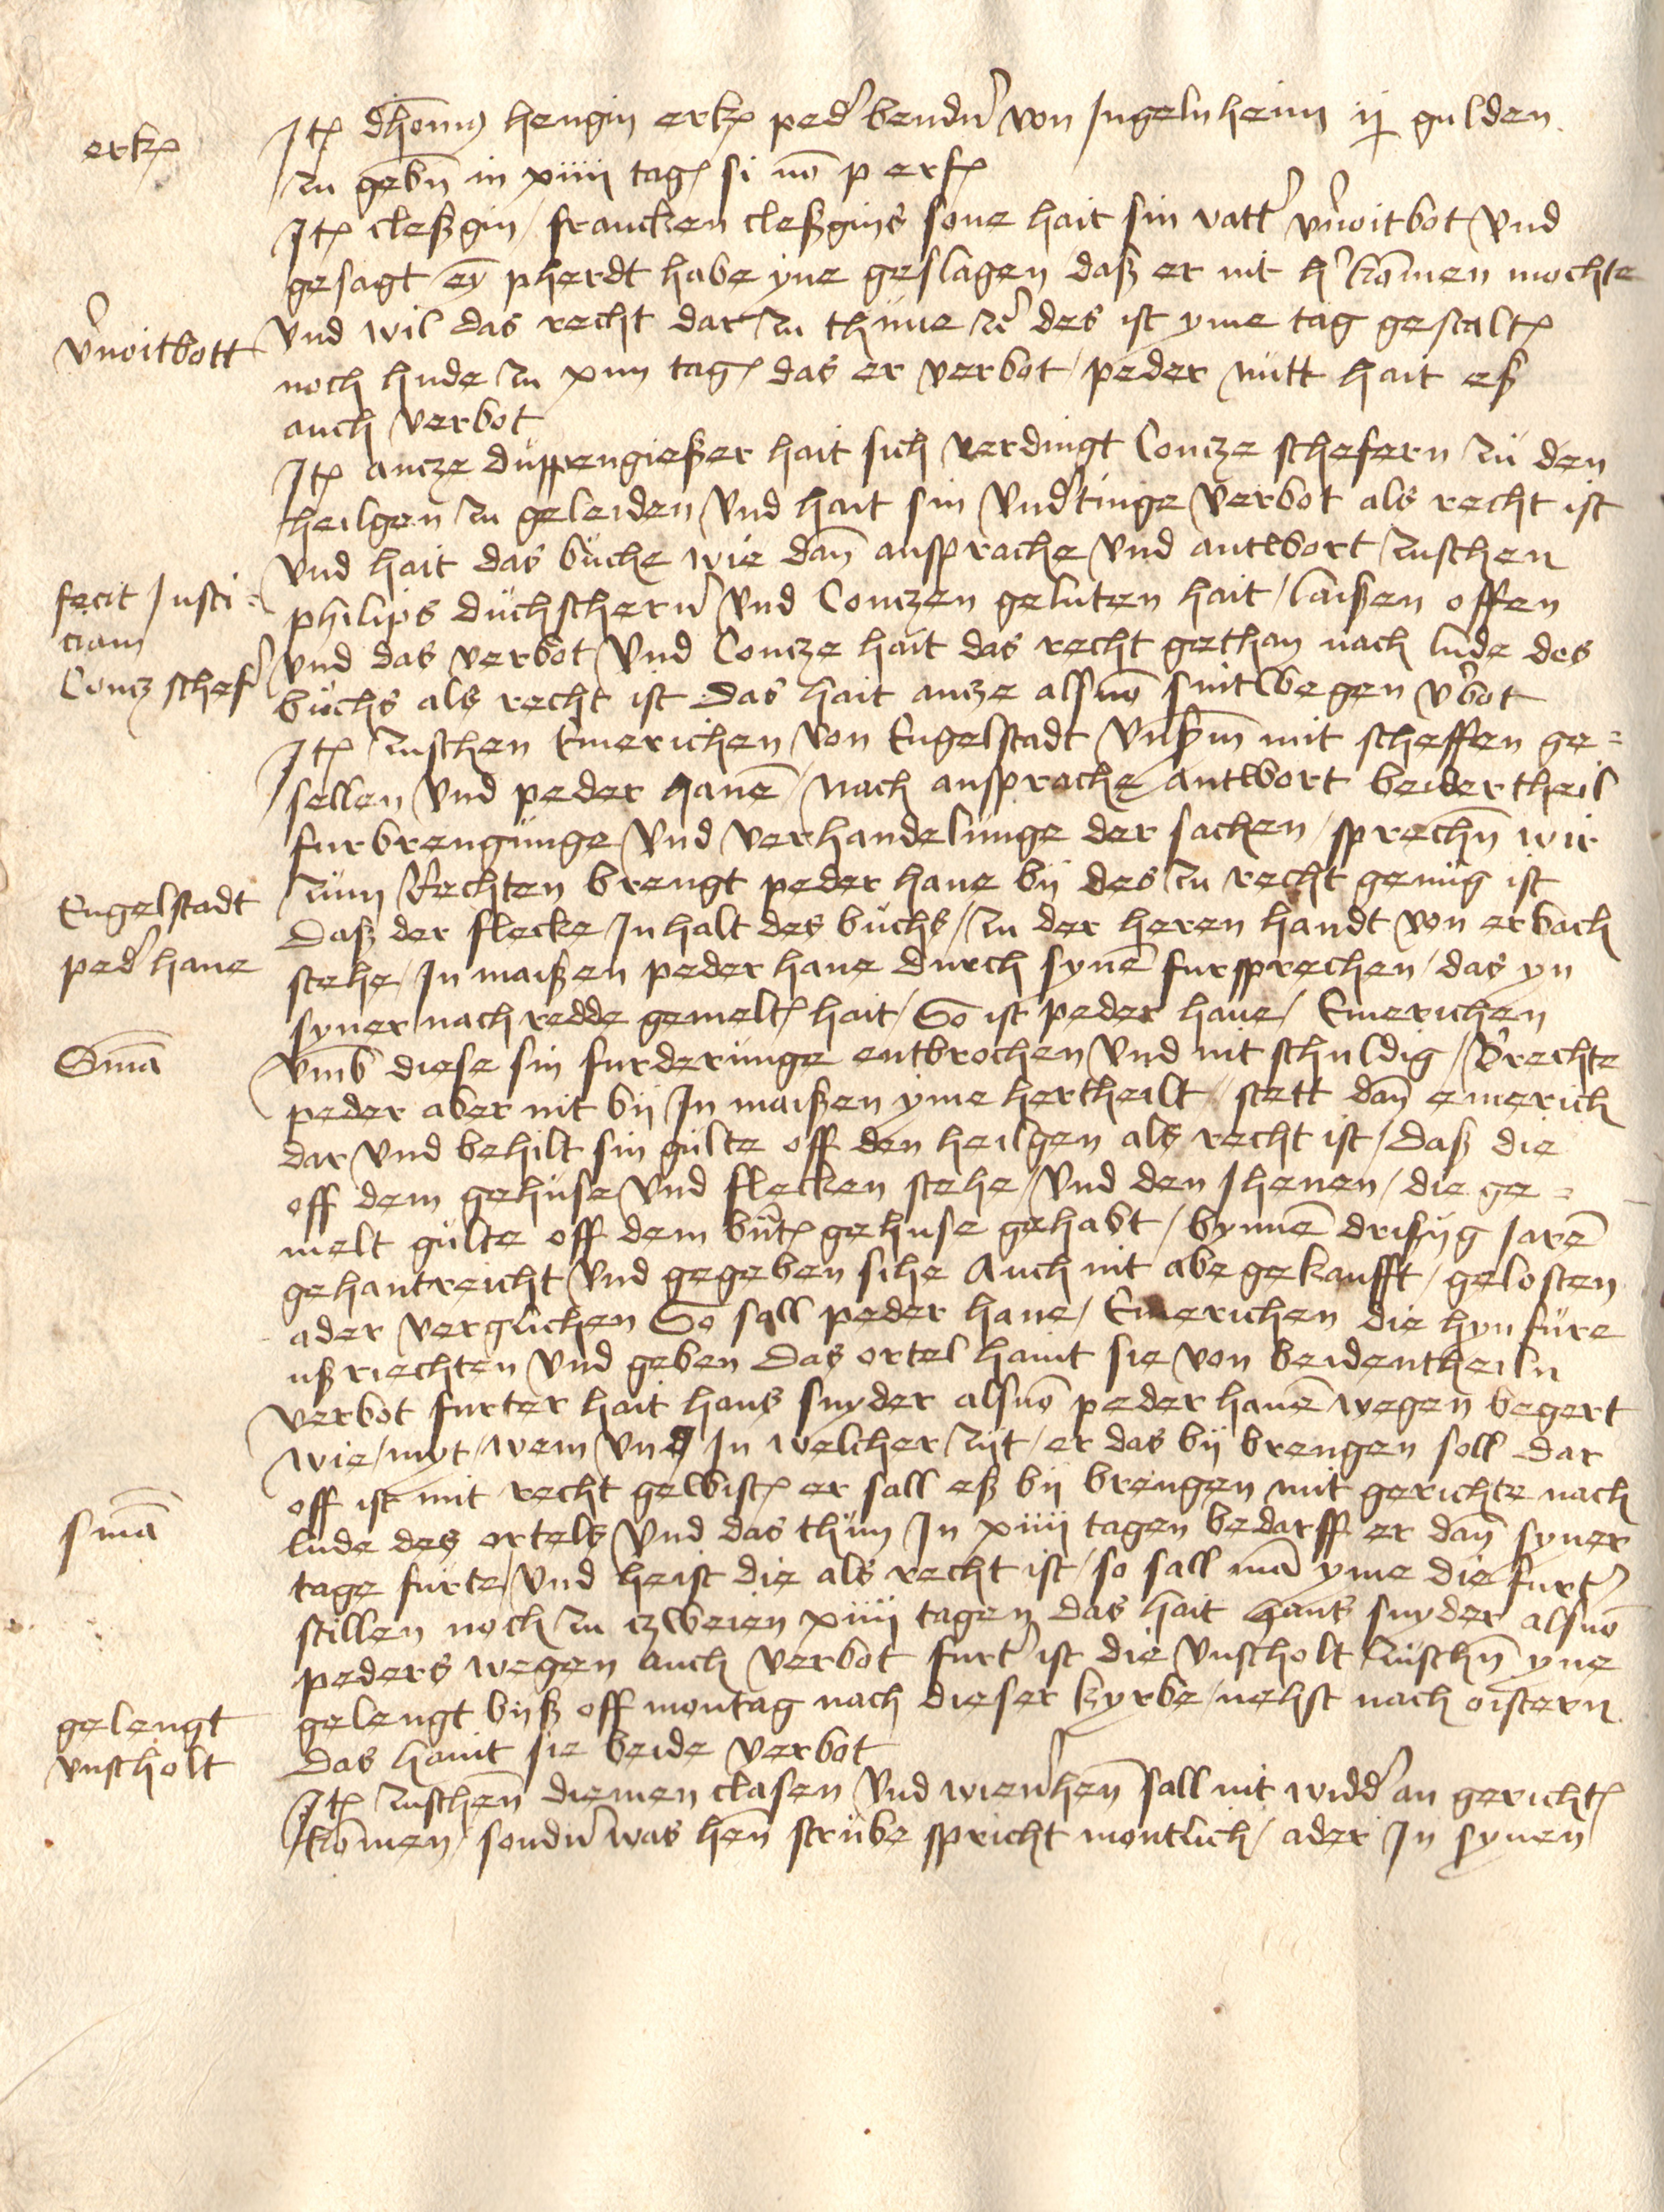 erk̃
Itẽ dhom̃ꝰ hengin erk̃ ped' bend'n von Ingelnheim ij gulden
zu gebn̄ in xiiii tagẽ si nō p erfẽ
Itẽ cleßgin / francken cleßgins sone hait sin vatt' v'noitbot vnd
gesagt ey̅ pherdt habe yne geslagen daß er nit h' kōmen mochte
v'noitbott
vnd wil das recht dar zu thune zc' des ist yme tag gestaltẽ
noch hude zu xiiii tagẽ das er verbot / peder nutt hait eß
auch verbot
Itẽ ancze duppengießer hait sich verdingt Concze schefern zu den
heilgen zu geleiden vnd hait sin vnd'tinge verbot als recht ist
vnd hait das buche wie dan̄ ansprache vnd antwort zuschen
fecit Justi=
ciam
Concz schef'
philips duchscher'n vnd Conczen geluten hait / laißen offen
vnd das verbot vnd Concze hait das recht gethan nach lude des
buchs als recht ist das hait ancze alsuō sintwegen v'bot
Itẽ zuschen Emerichen von Engelstadt vnßm̄ mit scheffen ge=
sellen vnd peder hanē / nach ansprache antwort beidertheil
furbrengunge vnd verhandelunge der sachen / sprechn̄ wir
Engelstadt
ped' hane
zum Rechten brengt peder hane bij des zu recht genug ist
Daß der flecke Inhalt des buchs / zu der heren handt von erbach
stehe / In maißen peder hane durch synē fursprechen / das yn
syner nach redde gemeltẽ hait / So ist peder hane / Emerichen
Sm̄a
vmb diese sin furderunge entbrochen vnd nit schuldig / Brechte
peder aber nit bij In maißen yme hertheilt / stett dan̄ emerich
dar vnd behilt sin gulte off den heilgen als recht ist / daß die
off dem gehuse vnd flecken stehe / vnd den Jhenen / die ge=
melt gulte off dem bn̄tẽ gehuse gehabt / bynnē drißig Jarē
gehantreicht vnd gegeben sihe Auch nit abegekaufft / gelosten
ader verglichen So sall peder hane / Emerichen die hynfure
ußriechten vnd geben Das ortel haint sie von beidentheiln
verbot furter hait hans snyder alsuō peder hanē wegen begert
wie / myt / wem vnd In welcher zijt / er das bij brengen soll dar
off ist mit recht gewistẽ er sall eß bij brengen mit gerichte nach
sm̄a
lude des ortels vnd das thun In xiiii tagen bedarff er dan̄ syner
tage furte / vnd heist die als recht ist / so sall mā yme die furt'
stillen noch zu czweien xiiii tagen das hait hans snyder alsuō
peders wegen auch verbot furt' ist die vnscholt zuschn̄ yne
gelengt
vnscholt
gelengt bijß off montag nach dieser kyrbe / nehst nach oistern
Das haint sie beide verbot
Itẽ zuschen̄ diemen clasen vnd wien'hen̄ sall nit widd' an gerichtẽ
kōmen / sond'n was hen̄ strube spricht montlich / ader In synen